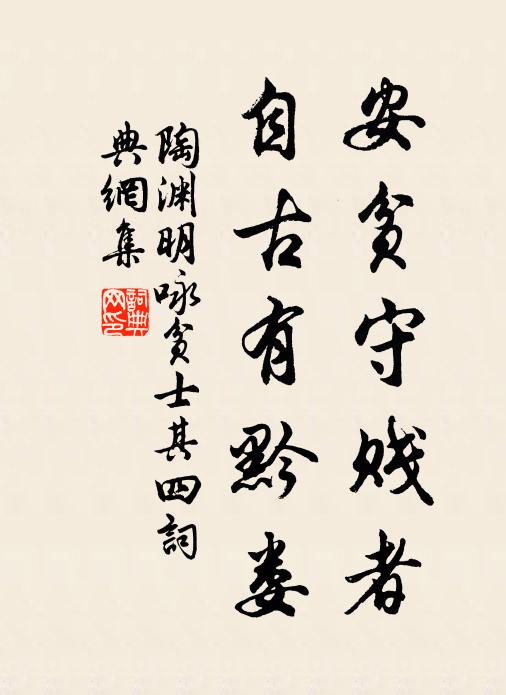 安贫守贱者
自古有黔娄
陶渊明咏贫士其四詞
典網集
詞典
网印